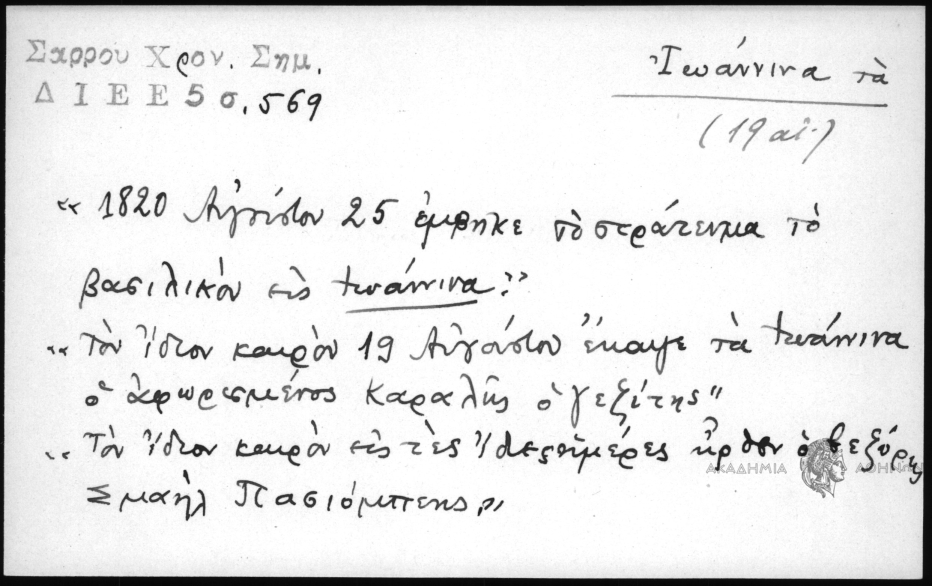 Σαρρου Χρον. Σημ.
Δ Ι Ε Ε 5 σ. 569
Ἰωάννινα τὰ
(19 αἰ.)
« 1820 Αὐγούστου 25 ἐμβηκε τὸ στράτευμα τὸ
βασιλικὸν εἰς Ἰωάννινα »
« Τὸν ἴδιον καιρὸν 19 Αὐγούστου ἔκαψε τὰ Ἰωάννινα
ὁ ἀφωρεσμένος Καραλῆς ὁ γεζίτης "
« Τὸν ἴδιον καιρὸν εἰς τὲς ἡμέρες ἦρθεν ὁ βεζύρης
Σμαὴλ Πασιόμπεης "
ΑΚΑΔΗΜΙΑ ΑΘΗΝΩΝ